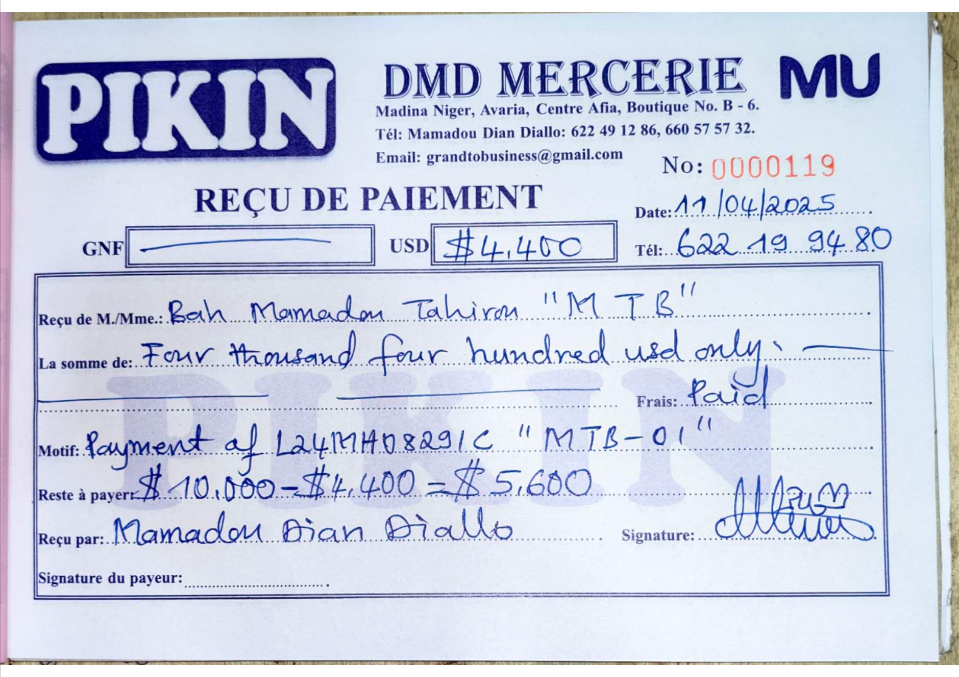 PIKIN
DMD MERCERIE
MU
Madina Niger, Avaria, Centre Afia, Boutique No. B - 6.
Tél: Mamadou Dian Diallo: 622 49 12 86, 660 57 57 32.
Email: grandtobusiness@gmail.com
No: 0000119
REÇU DE PAIEMENT
Date: 11/04/2025
GNF USD $4,400 Tél: 622 19 94 80
Reçu de M./Mme.: Bah Mamadou Tahirou "M T B"
La somme de: Four thousand four hundred usd only.
Frais: Paid
Motif: Payment of L24MH0829IC "MTB-01"
Reste à payer: $10,000-$4,400 = $5,600
Reçu par: Mamadou Dian Diallo Signature:
Signature du payeur:
PIKIN